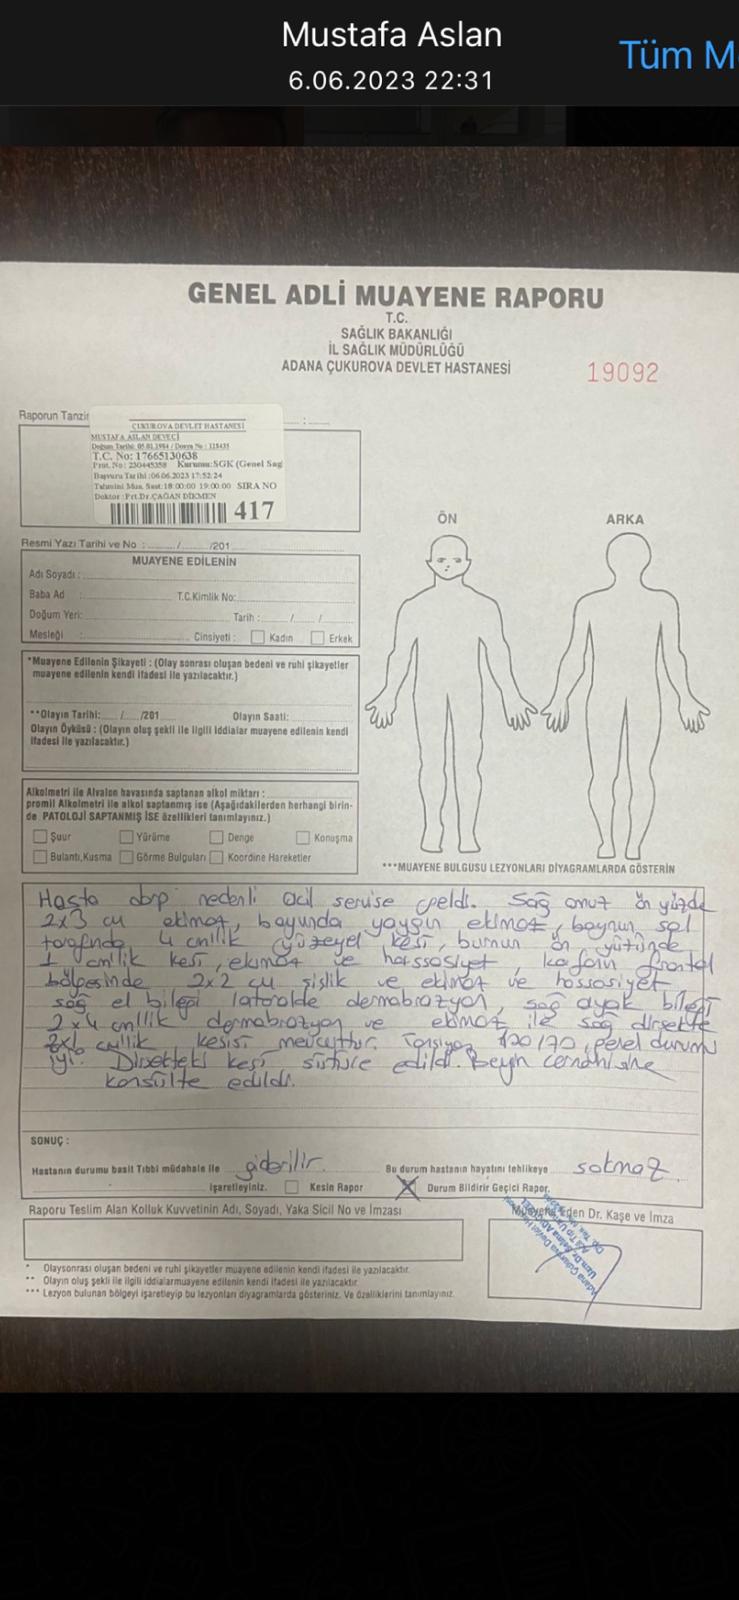 Mustafa Aslan
6.06.2023 22:31
Tüm M
GENEL ADLİ MUAYENE RAPORU
T.C.
SAĞLIK BAKANLIĞI
İL SAĞLIK MÜDÜRLÜĞÜ
ADANA ÇUKUROVA DEVLET HASTANESİ
19092
Raporun Tanzi
ÇUKUROVA DEVLET HASTANESİ
MUSTAFA ASLAN DEVECİ
Doğum Tarihi: 05.01.1984 / Dosya No : 118435
T.C. No: 17665130638
Prot. No: 230445358 Kurumu:SGK (Genel Sağ
Başvuru Tarihi :06.06.2023 17:52:24
Tahmini Mua. Saat:18:00:00 19:00:00 SIRA NO
Doktor :Prt.Dr.ÇAĞAN DİKMEN
417
ÖN
ARKA
Resmi Yazı Tarihi ve No : ....... /....... /201
MUAYENE EDİLENİN
Adı Soyadı :
Baba Ad : T.C.Kimlik No:
Doğum Yeri: Tarih : / /
Mesleği : Cinsiyeti : Kadın Erkek
*Muayene Edilenin Şikayeti : (Olay sonrası oluşan bedeni ve ruhi şikayetler
muayene edilenin kendi ifadesi ile yazılacaktır.)
**Olayın Tarihi: / /201 Olayın Saati:
Olayın Öyküsü : (Olayın oluş şekli ile ilgili iddialar muayene edilenin kendi
ifadesi ile yazılacaktır.)
Alkolmetri ile Alvalon havasında saptanan alkol miktarı :
promil Alkolmetri ile alkol saptanmış ise (Aşağıdakilerden herhangi birin-
de PATOLOJİ SAPTANMIŞ İSE özellikleri tanımlayınız.)
Şuur Yürüme Denge Konuşma
Bulantı,Kusma Görme Bulguları Koordine Hareketler
***MUAYENE BULGUSU LEZYONLARI DİYAGRAMLARDA GÖSTERİN
Hasta darp nedenli acil servise geldi. Sağ omuz ön yüzde
2x3 cm ekimoz, boyunda yaygın ekimoz, boynun sol
tarafında 4 cmlik yüzeyel kesi, burnun ön yüzünde
1 cmlik kesi, ekimoz ve hassasiyet, kafanın frontal
bölgesinde 2x2 cm şişlik ve ekimoz ve hassasiyet
sağ el bileği lateralde dermabrazyon, sağ ayak bileği
2x4 cmlik dermabrazyon ve ekimoz ile sağ dirsekte
cmlik kesisi mevcuttur. Tansiyon 120/70, genel durumu
iyi. Dirsekteki kesi süture edildi. Beyin cerrahisine
konsülte edildi.
SONUÇ :
Hastanın durumu basit Tıbbi müdahale ile giderilir. Bu durum hastanın hayatini tehlikeye sokmaz.
işaretleyiniz. Kesin Rapor Durum Bildirir Geçici Rapor.
Raporu Teslim Alan Kolluk Kuvvetinin Adı, Soyadı, Yaka Sicil No ve İmzası
Muayene Eden Dr. Kaşe ve İmza
* Olaysonrası oluşan bedeni ve ruhi şikayetler muayene edilenin kendi ifadesi ile yazılacaktır.
** Olayın oluş şekli ile ilgili iddialarmuayene edilenin kendi ifadesi ile yazılacaktır.
*** Lezyon bulunan bölgeyi işaretleyip bu lezyonları diyagramlarda gösteriniz. Ve özelliklerini tanımlayınız.